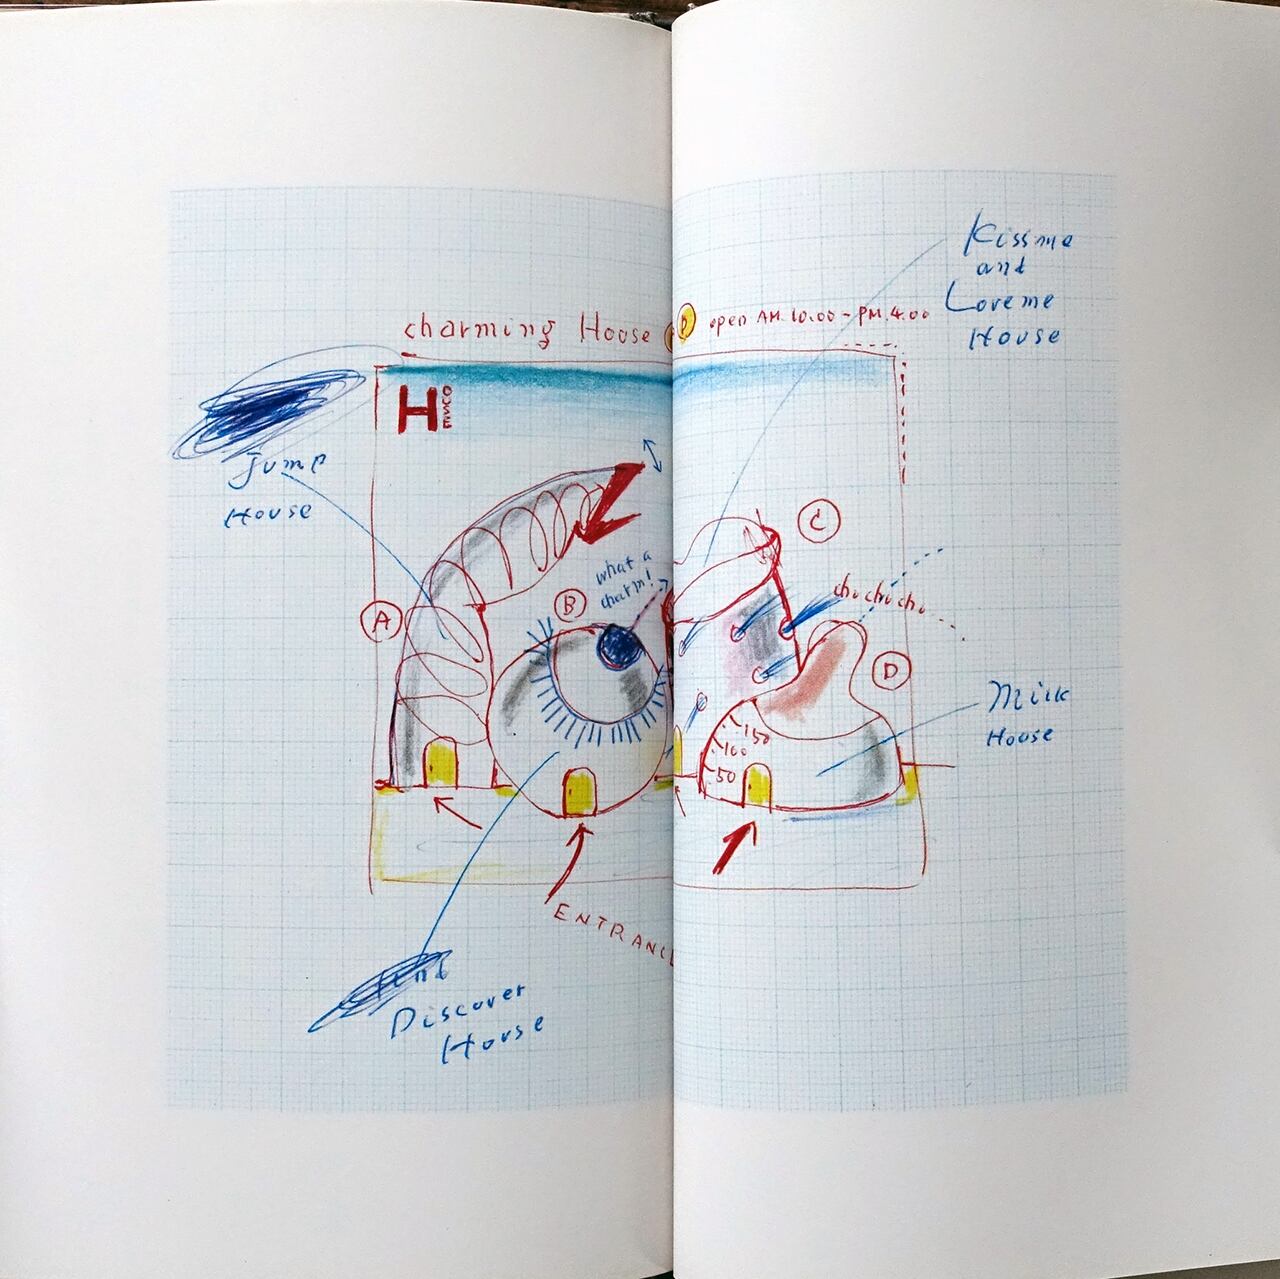 charming House
P
open AM.10.00-PM.4.00
Kissme
and
Loveme
House
HOUSE
Jump
House
C
what a
charm!
B
A
chu chu chu
D
Milk
House
150
100
50
ENTRANC
Discover
House